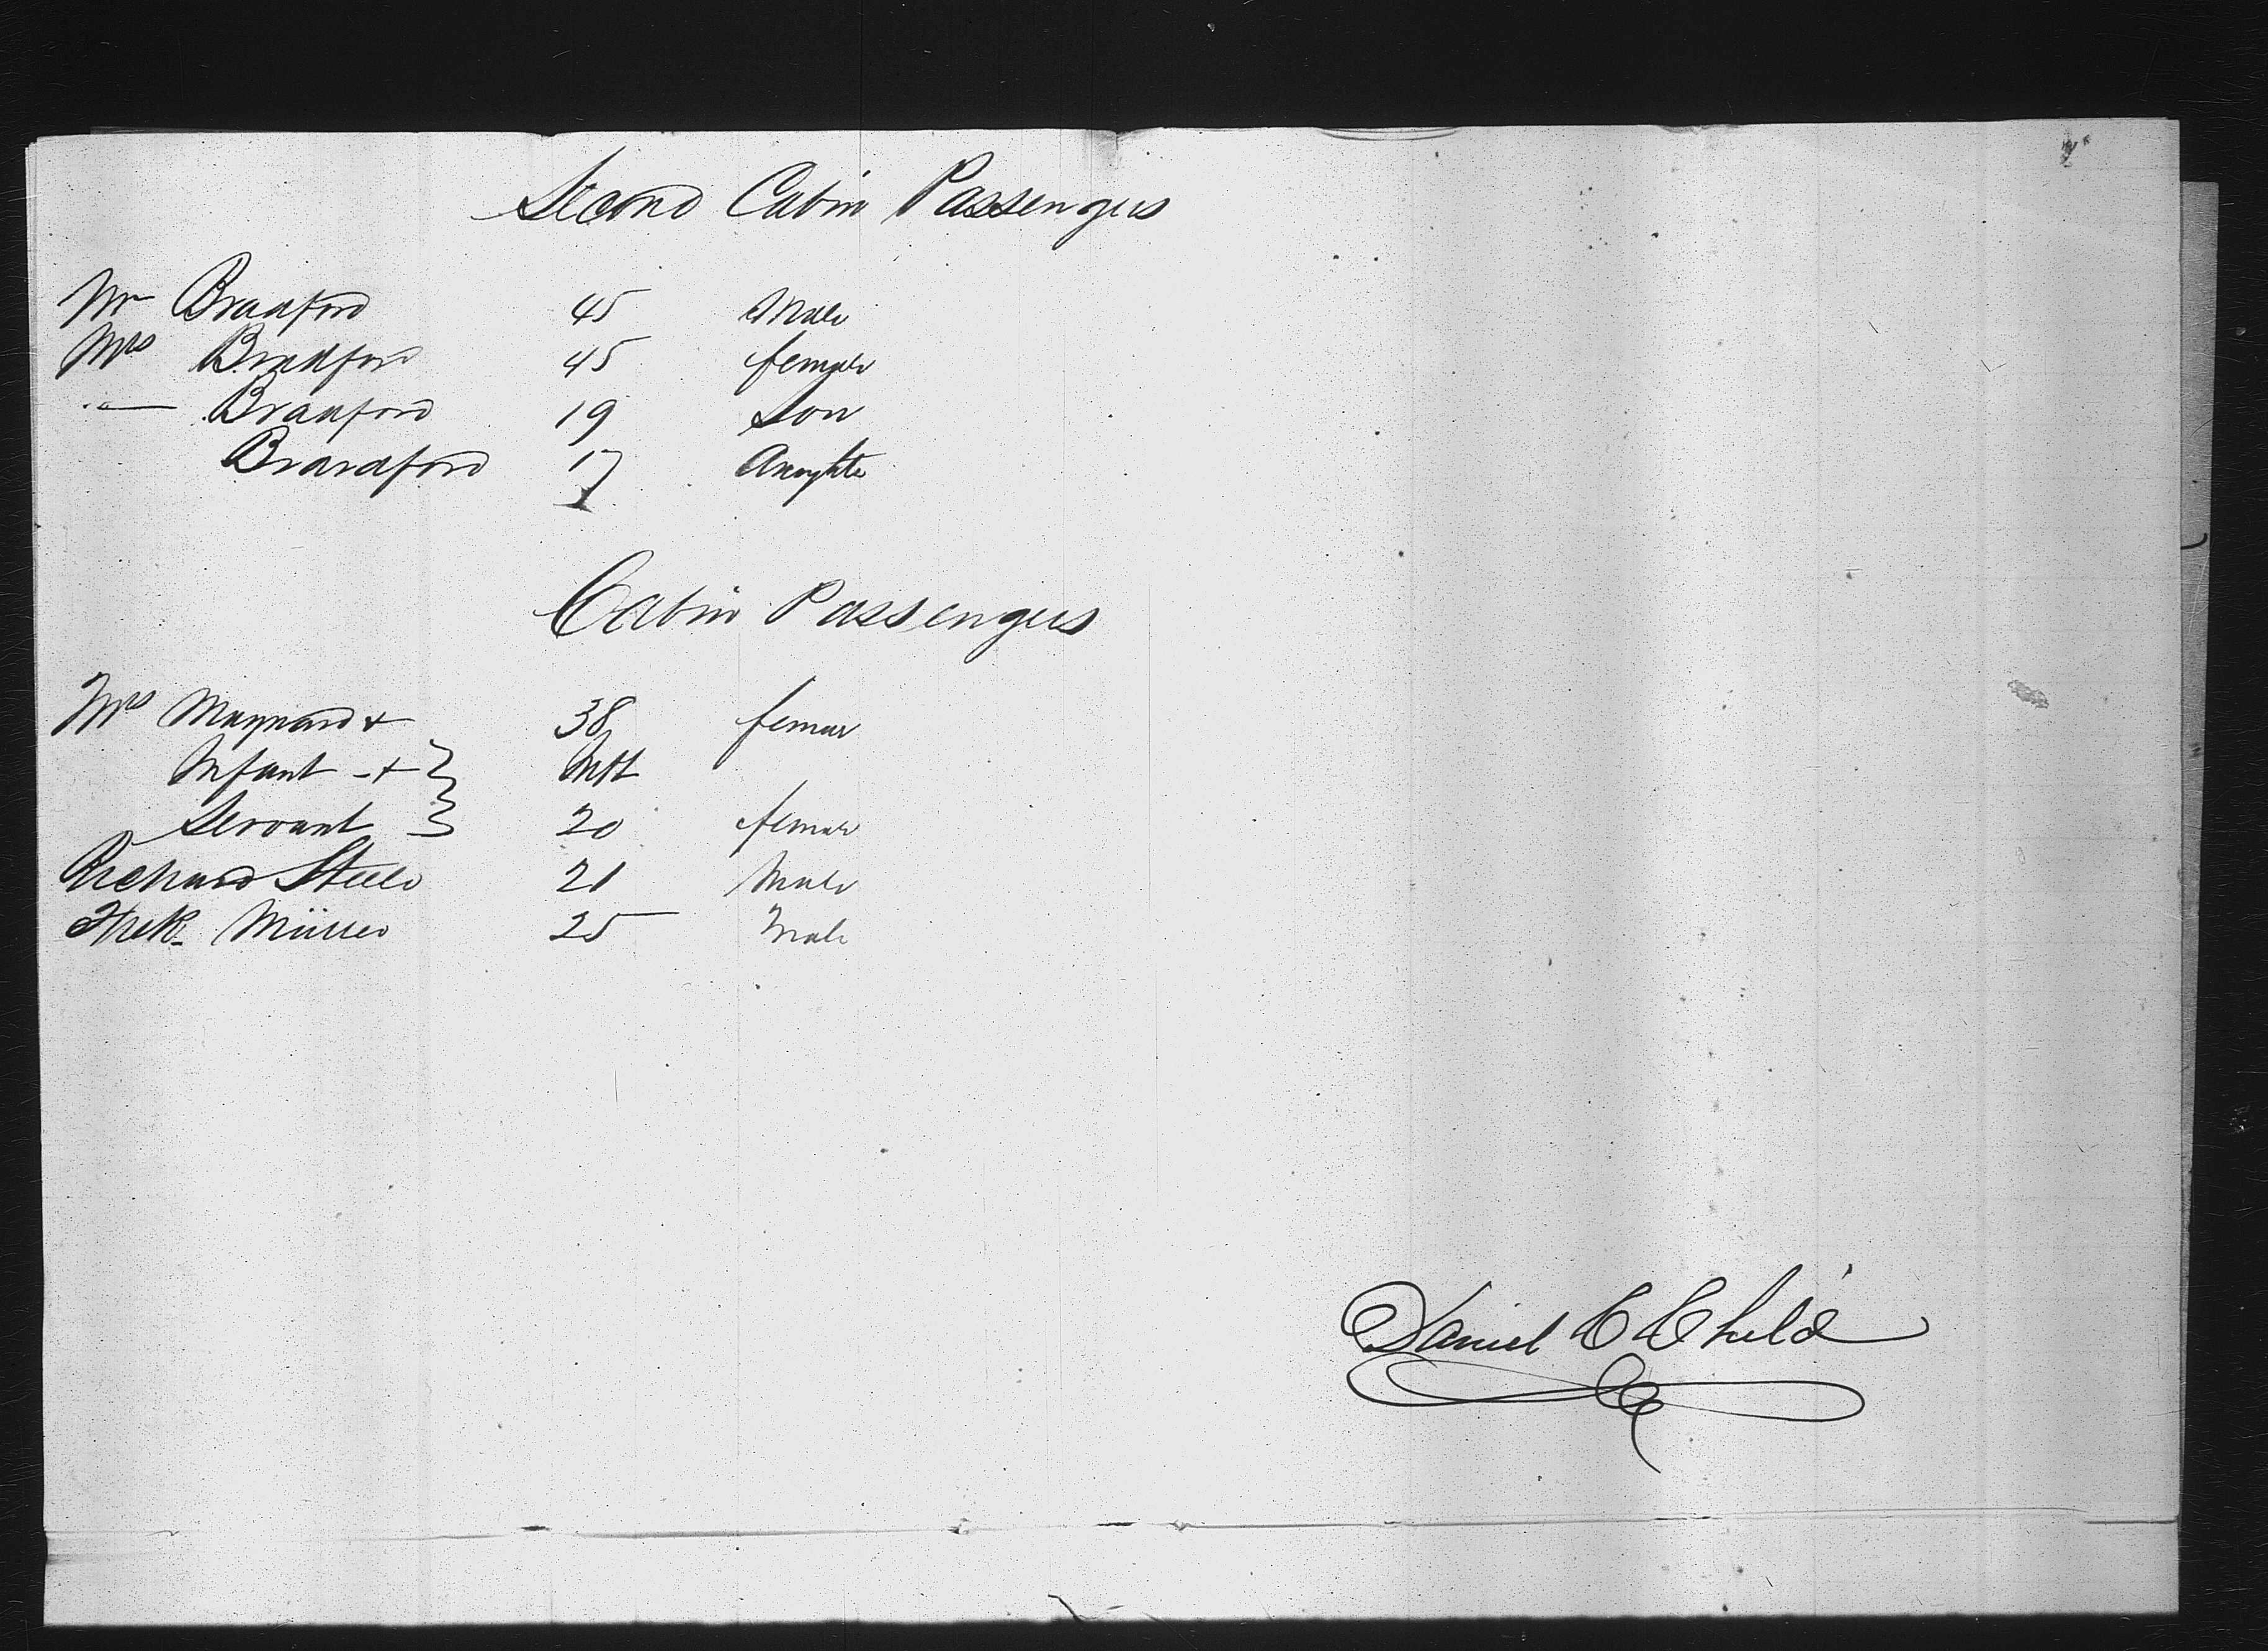 Second Cabin Passengers
Mr Bradford 45 Male
Mrs Bradford 45 female
" — Bradford 19 Son
Bradford 17 daughter
Cabin Passengers
Mrs Maynard + 38 female
Infant - + Inft
Servant 20 female
Richard Steele 21 Male
Fredk. Müller 25 Male
Daniel C Child